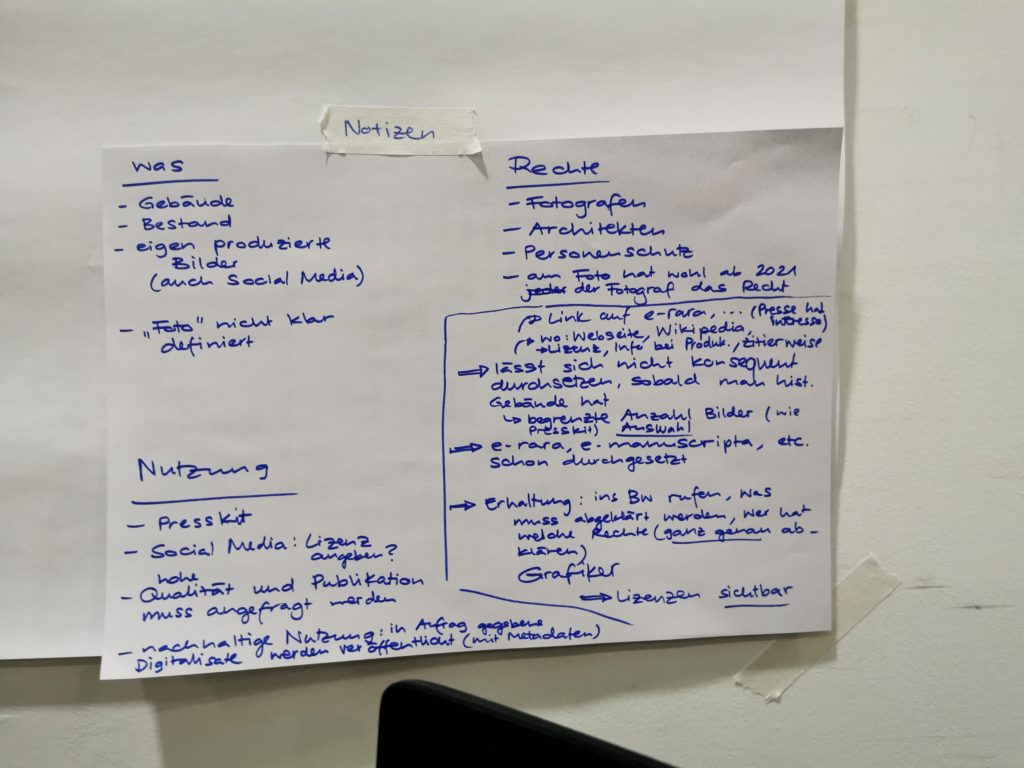 Notizen
was
- Gebäude
- Bestand
- eigen produzierte
Bilder
(auch Social Media)
- „Foto" nicht klar
definiert
Nutzung
- Presskit
- Social Media: Lizenz
angeben?
hohe
- Qualität und Publikation
muss angefragt werden
- nachhaltige Nutzung: in Aufrag gegebene
Digitalisate werden veröffentlicht (mit Metadaten)
Rechte
- Fotografen
- Architekten
- Personenschutz
- am Foto hat wohl ab 2021
jeder der Fotograf das Recht
Link auf e-rara, ... (Presse hat
Intresse)
wo: Webseite, Wikipedia,
→ Lizenz, Info bei Produk., zitierweise
⇒ lässt sich nicht konsequent
durchsetzen, sobald man hist.
Gebäude hat
↳ begrenzte Anzahl Bilder (wie
Presskit) Auswahl
⇒ e-rara, e-manuscripta, etc.
schon durchgesetzt
→ Erhaltung: ins BW rufen, was
muss abgeklärt werden, wer hat
welche Rechte (ganz genau ab-
klären)
Grafiker
⇒ Lizenzen sichtbar